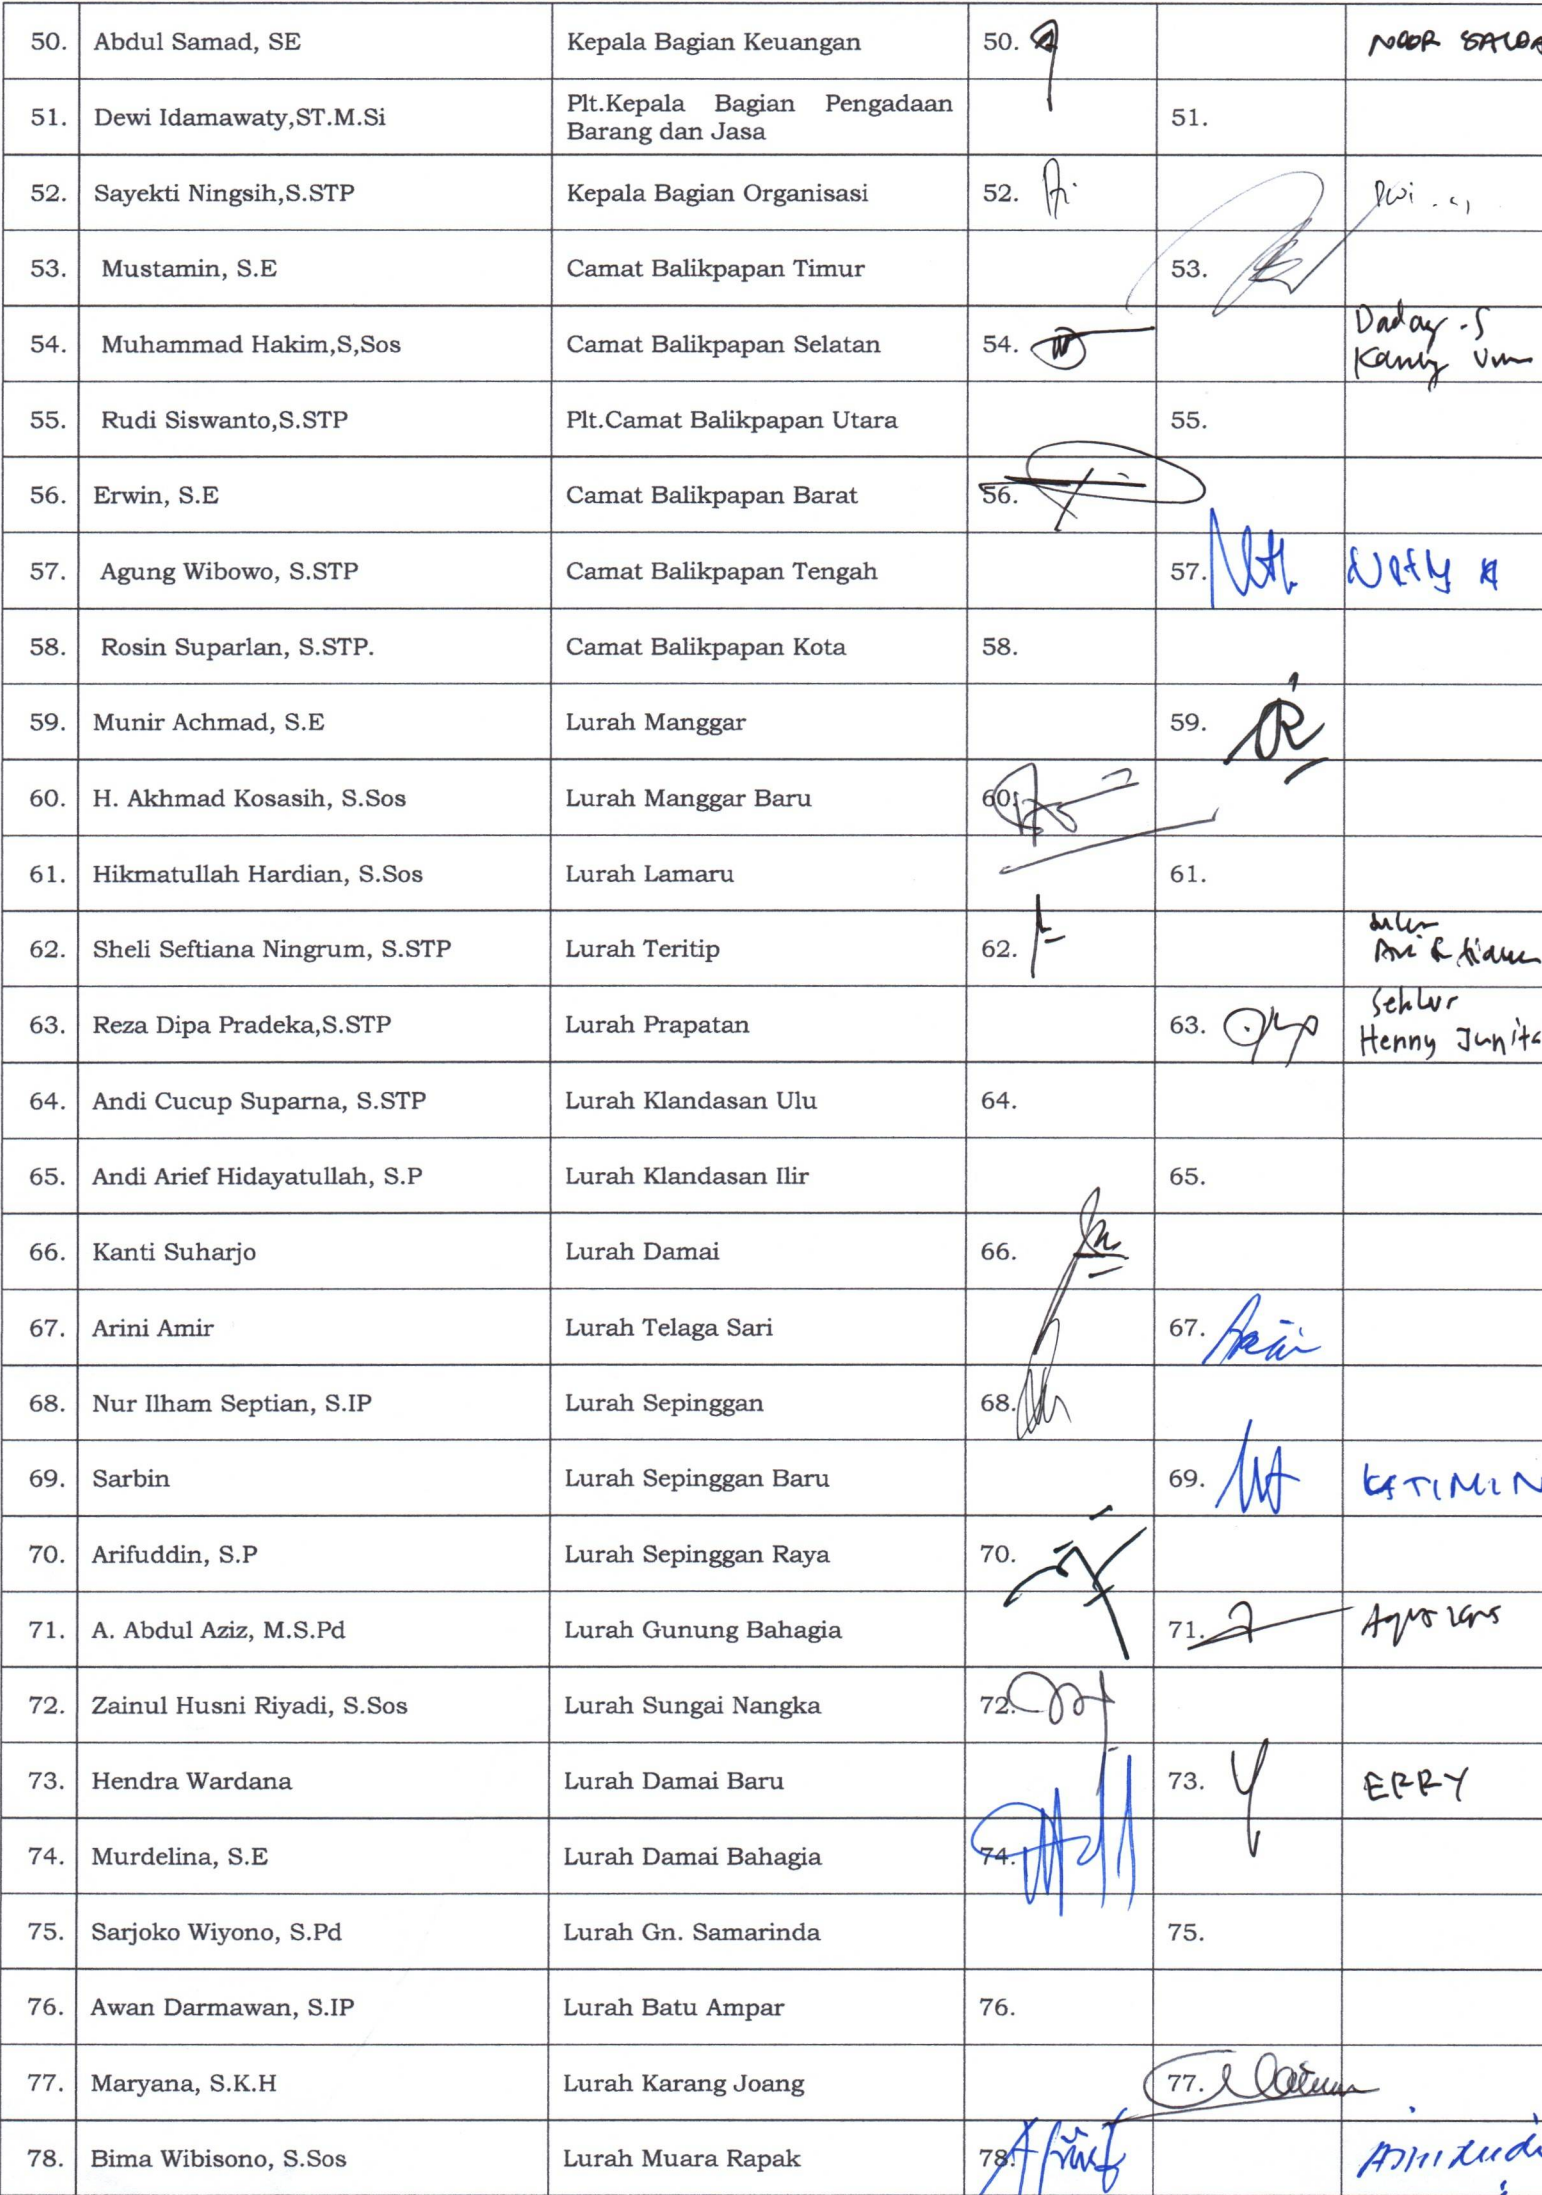 50. Abdul Samad, SE Kepala Bagian Keuangan 50. NOOR
51. Dewi Idamawaty,ST.M.Si Plt.Kepala Bagian Pengadaan Barang dan Jasa 51.
52. Sayekti Ningsih,S.STP Kepala Bagian Organisasi 52. Dwi
53. Mustamin, S.E Camat Balikpapan Timur 53.
54. Muhammad Hakim,S,Sos Camat Balikpapan Selatan 54.
55. Rudi Siswanto,S.STP Plt.Camat Balikpapan Utara 55.
56. Erwin, S.E Camat Balikpapan Barat 56.
57. Agung Wibowo, S.STP Camat Balikpapan Tengah 57.
58. Rosin Suparlan, S.STP. Camat Balikpapan Kota 58.
59. Munir Achmad, S.E Lurah Manggar 59.
60. H. Akhmad Kosasih, S.Sos Lurah Manggar Baru 60.
61. Hikmatullah Hardian, S.Sos Lurah Lamaru 61.
62. Sheli Seftiana Ningrum, S.STP Lurah Teritip 62.
63. Reza Dipa Pradeka,S.STP Lurah Prapatan 63. Seklur
Henny Junita
64. Andi Cucup Suparna, S.STP Lurah Klandasan Ulu 64.
65. Andi Arief Hidayatullah, S.P Lurah Klandasan Ilir 65.
66. Kanti Suharjo Lurah Damai 66.
67. Arini Amir Lurah Telaga Sari 67.
68. Nur Ilham Septian, S.IP Lurah Sepinggan 68.
69. Sarbin Lurah Sepinggan Baru 69. KATIMIN
70. Arifuddin, S.P Lurah Sepinggan Raya 70.
71. A. Abdul Aziz, M.S.Pd Lurah Gunung Bahagia 71.
72. Zainul Husni Riyadi, S.Sos Lurah Sungai Nangka 72.
73. Hendra Wardana Lurah Damai Baru 73. ERRY
74. Murdelina, S.E Lurah Damai Bahagia 74.
75. Sarjoko Wiyono, S.Pd Lurah Gn. Samarinda 75.
76. Awan Darmawan, S.IP Lurah Batu Ampar 76.
77. Maryana, S.K.H Lurah Karang Joang 77.
78. Bima Wibisono, S.Sos Lurah Muara Rapak 78.